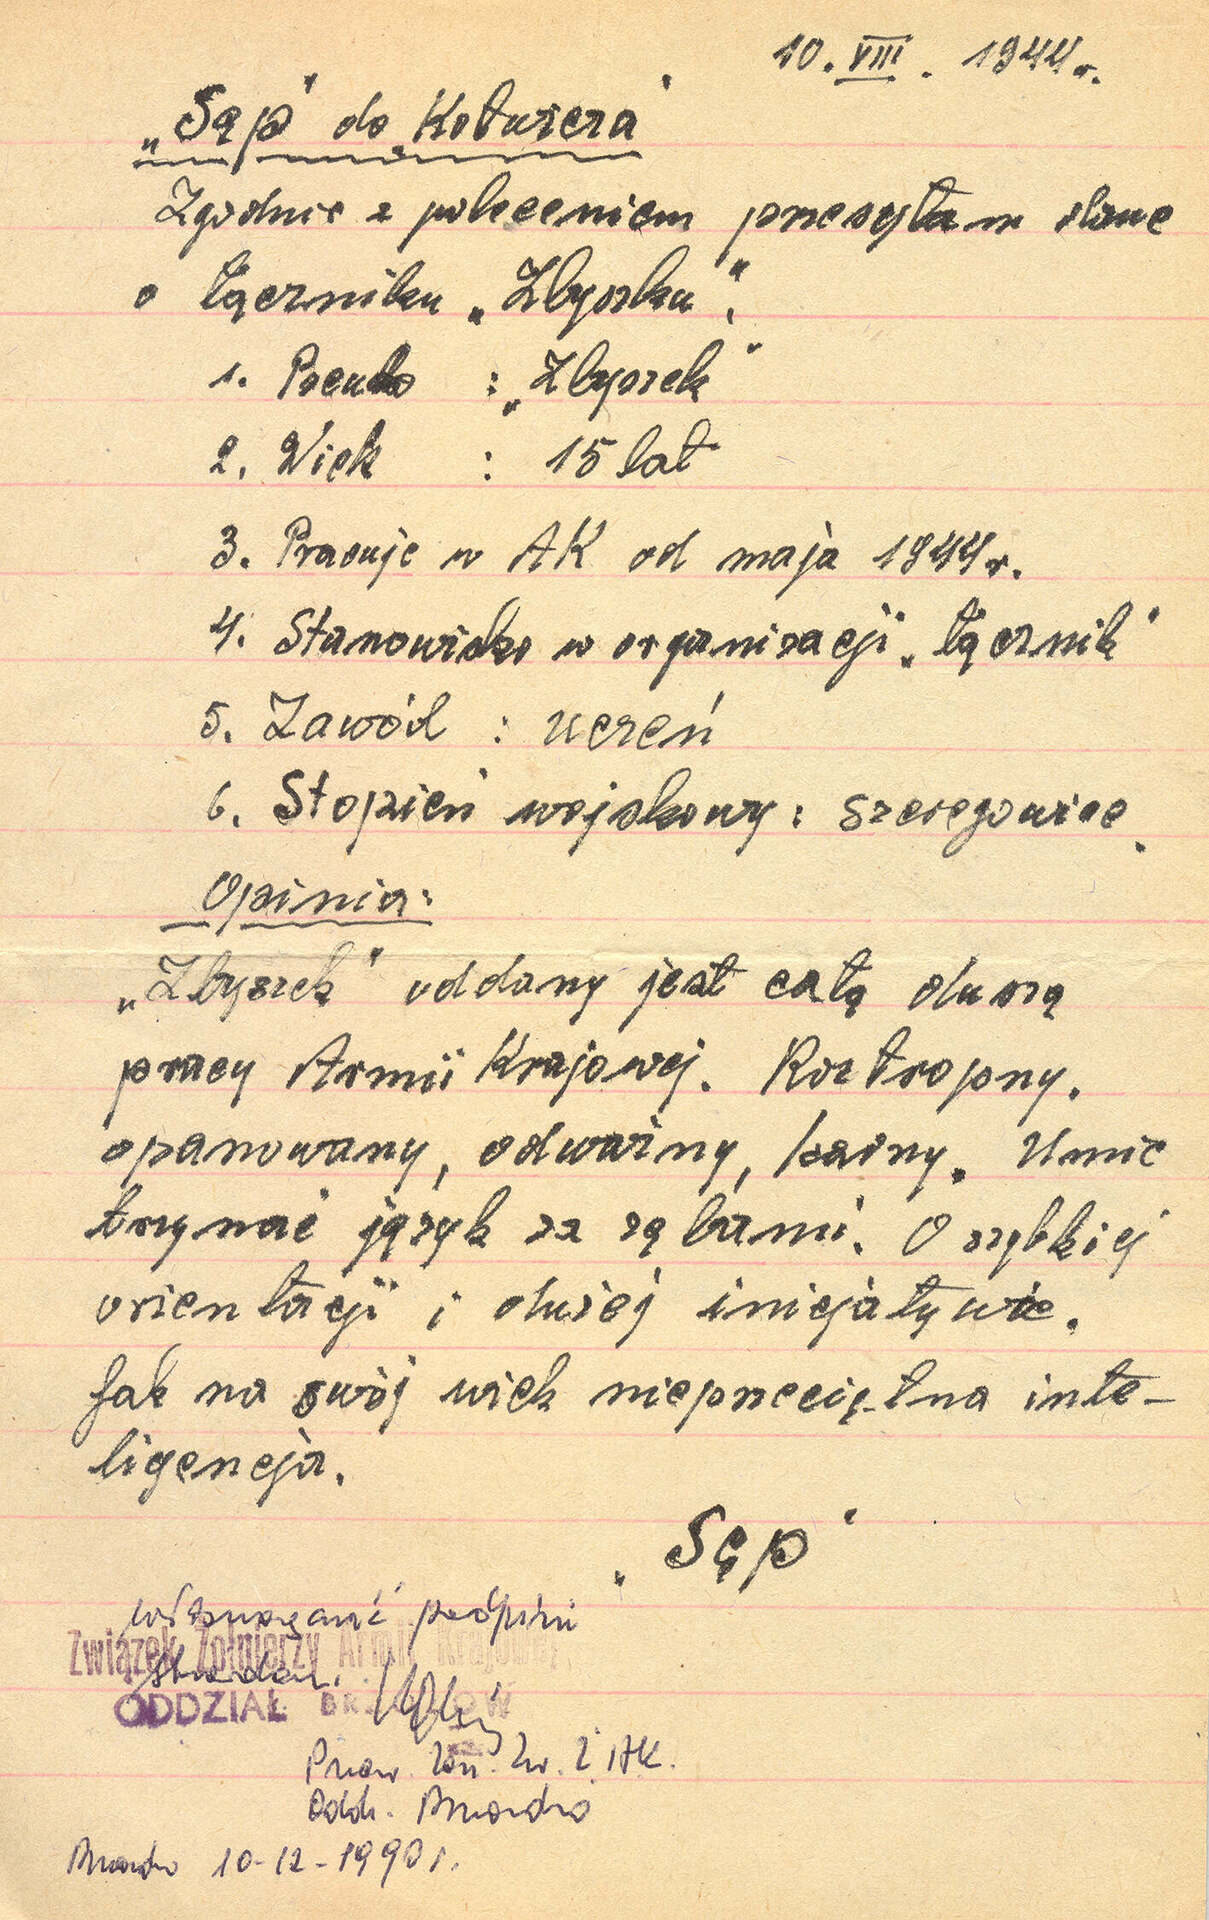 10. VIII. 1944 r.
„Sęp" do „Kotwicza"
Zgodnie z poleceniem przesyłam dane
o łączniku „Zbyszku".
1. Pseudo : „Zbyszek"
2. Wiek : 15 lat
3. Pracuje w AK od maja 1944 r.
4. Stanowisko w organizacji „łącznik"
5. Zawód : uczeń
6. Stopień wojskowy : szeregowiec.
Opinia:
„Zbyszek" oddany jest całą duszą
pracy Armii Krajowej. Roztropny,
opanowany, odważny, karny. Umie
trzymać język za zębami. O szybkiej
orientacji i dużej inicjatywie.
Jak na swój wiek nieprzeciętna inte-
ligencja.
„Sęp"
wiarygodność podpisu
Związek Żołnierzy Armii Krajowej
stwierdzam
ODDZIAŁ BRZOZÓW
Przew. Zw. Ż. AK.
Oddz. Brzozów
Brzozów 10-12-1990 r.